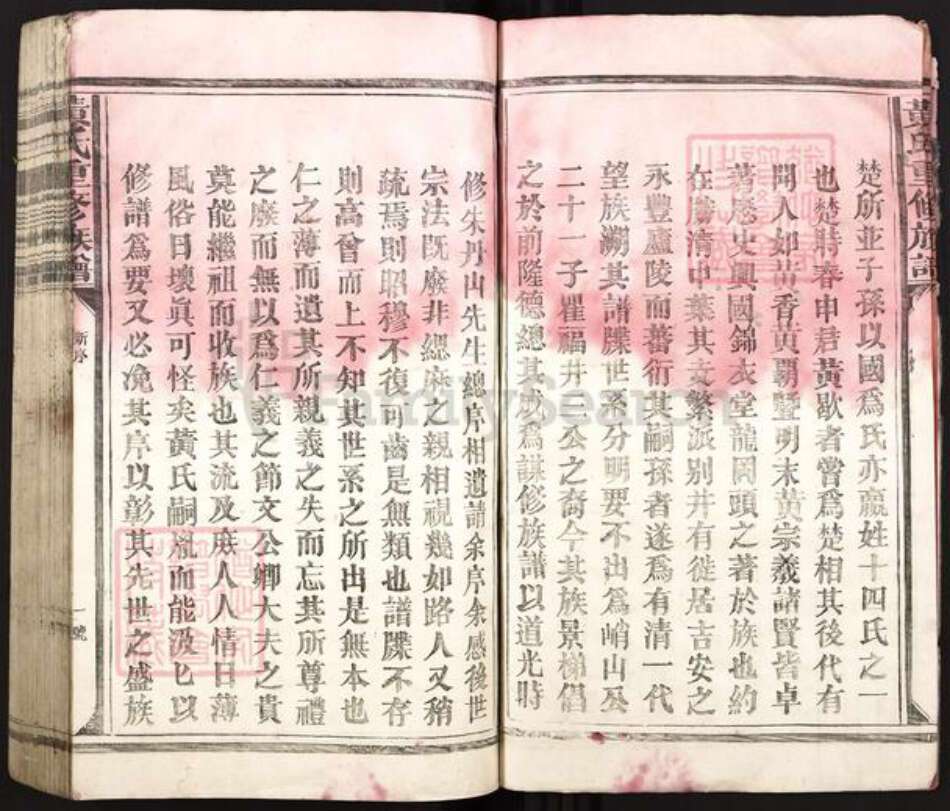 黃氏重修族譜
楚所並子孫以國爲氏亦嬴姓十四氏之一
也楚時春申君黃歇者嘗爲楚相其後代有
聞人如黃香黃霸曁明末黃宗羲諸賢皆卓
著歷史興國錦衣堂龍岡頭之著於族也約
在勝清中葉其支繁派別井有徙居吉安之
永豐廬陵而蕃衍其嗣孫者遂爲有清一代
望族溯其譜牒世系分明要不出爲峭山公
二十一子瞿福井三公之裔今其族景梯倡
之於前隆德總其成爲謀修族譜以道光時
修朱丹山先生總序相遺請余序余感後世
宗法既廢非緦麻之親相視幾如路人又稍
疏焉則昭穆不復可齒是無類也譜牒不存
則高曾而上不知其世系之所出是無本也
仁之薄而遺其所親義之失而忘其所尊禮
之廢而無以爲仁義之節文公卿大夫之貴
莫能繼祖而收族也其流及庶人人情日薄
風俗日壞眞可怪矣黃氏嗣胤而能汲匕以
修譜爲要又必浼其序以彰其先世之盛族
黃氏重修族譜
新序
一號
FamilySearch